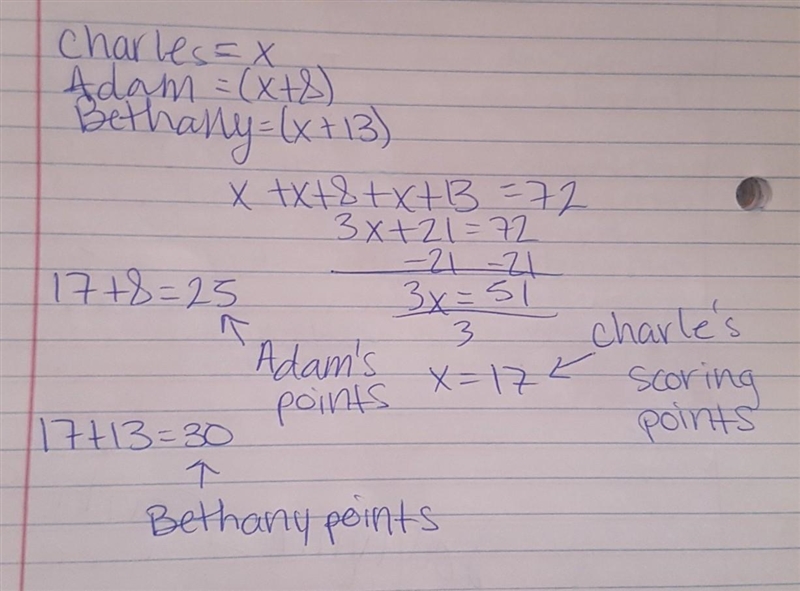 Charles = x
Adam = (x+8)
Bethany = (x+13)
x + x + 8 + x + 13 = 72
3x + 21 = 72
-21 -21
3x = 51
3
x = 17 ← Charle's
scoring
points
17 + 8 = 25
↑
Adam's
points
17 + 13 = 30
↑
Bethany points